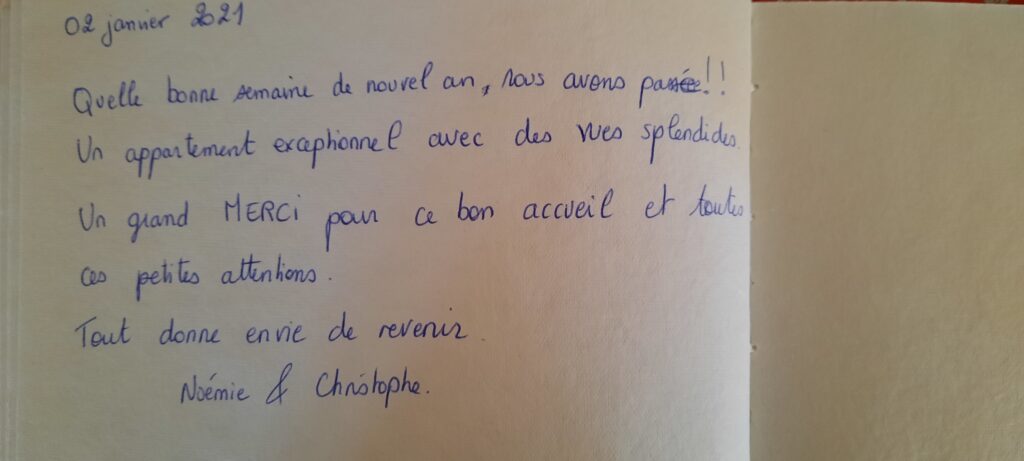 02 janvier 2021
Quelle bonne semaine de nouvel an, nous avons passée!!
Un appartement exceptionnel avec des vues splendides.
Un grand MERCi pour ce bon accueil et toutes
ces petites attentions.
Tout donne envie de revenir.
Noémie & Christophe.